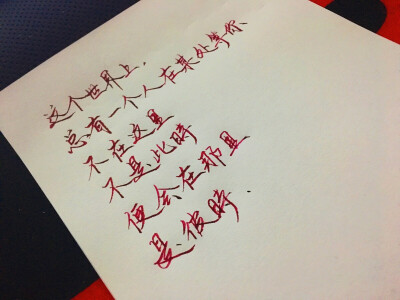 这个世界上.
总有一个人在某处等你
不在这里
不是此時
便会在那里
是彼時.